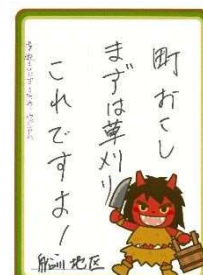 町おこし
まずは草刈り
これですよ!
船川地区